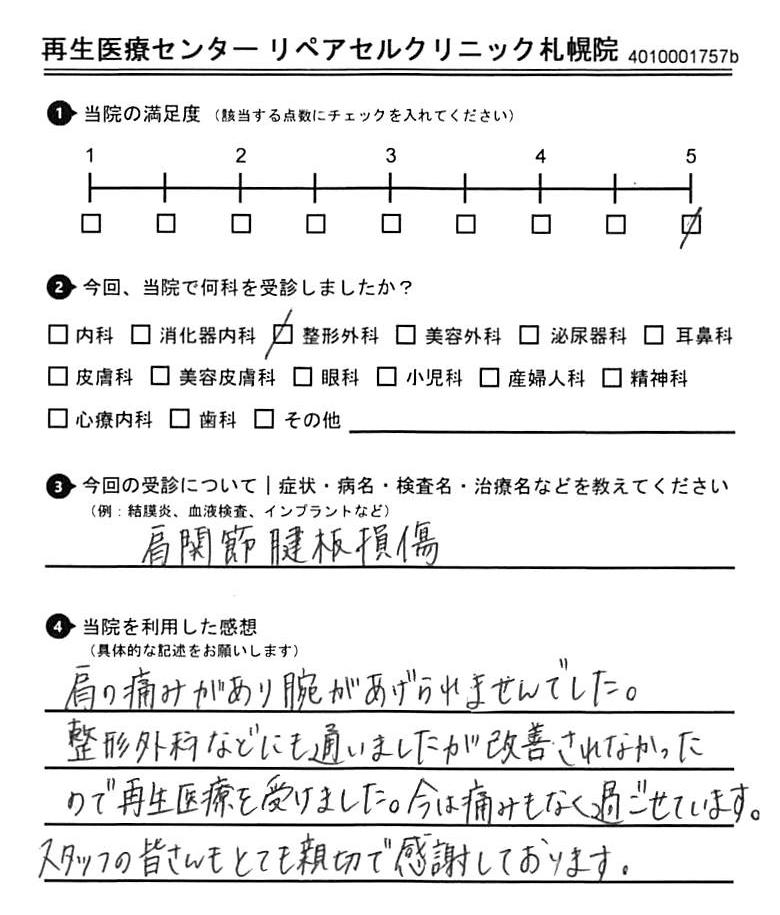 再生医療センター リペアセルクリニック札幌院 4010001757b
1 当院の満足度 (該当する点数にチェックを入れてください)
1 2 3 4 5
2 今回、当院で何科を受診しましたか？
内科 消化器内科 整形外科 美容外科 泌尿器科 耳鼻科
皮膚科 美容皮膚科 眼科 小児科 産婦人科 精神科
心療内科 歯科 その他
3 今回の受診について｜症状・病名・検査名・治療名などを教えてください
(例：結膜炎、血液検査、インプラントなど)
肩関節腱板損傷
4 当院を利用した感想
(具体的な記述をお願いします)
肩の痛みがあり腕があげられませんでした。
整形外科などにも通いましたが改善されなかった
ので再生医療を受けました。今は痛みもなく過ごせています。
スタッフの皆さんもとても親切で感謝しております。